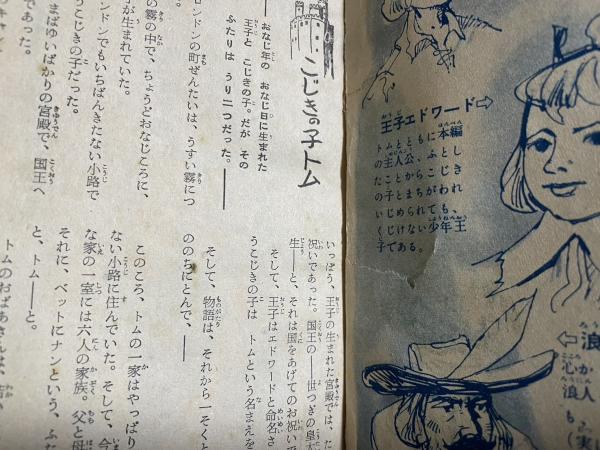 王子エドワード⇨
トムとともに本編
の主人公。ふとし
たことからこじき
の子とまちがわれ
いじめられても、
くじけない少年王
子である。
浪
心か
浪人
も
こじきの子トム
おなじ年の おなじ日に生まれた
王子と こじきの子。だが その
ふたりは うり二つだった。
ロンドンの町ぜんたいは、うすい霧につ
の霧の中で、ちょうどおなじころに、
子が生まれていた。
ンドンでもいちばんきたない小路で
うこじきの子だった。
まばゆいばかりの宮殿で、国王ヘ
であった。
いっぽう、王子の生まれた宮殿では、た
祝いであった。国王の――世つぎの皇太
生――と、それは国をあげてのお祝いで
そして、王子はエドワードと命名さ
うこじきの子は トムという名まえを
そして、物語は、それから一そくと
ののちにとんで、――
このころ、トムの一家はやっぱり
ない小路に住んでいた。そして、今
な家の一室には六人の家族。父と母
それに、ベットにナンという、ふた
と、トム――と。
トムのおばあさんは、